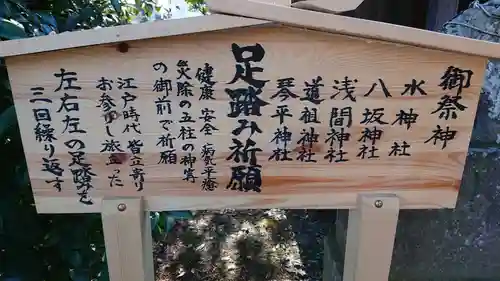 御祭神
水神社
八坂神社
浅間神社
道祖神社
琴平神社
足踏み祈願
健康 安全 病気平癒
災除の五柱の神実
の御前で祈願
江戸時代 皆立寄り
お参りし旅立った
左右左の足踏みを
三回繰り返す